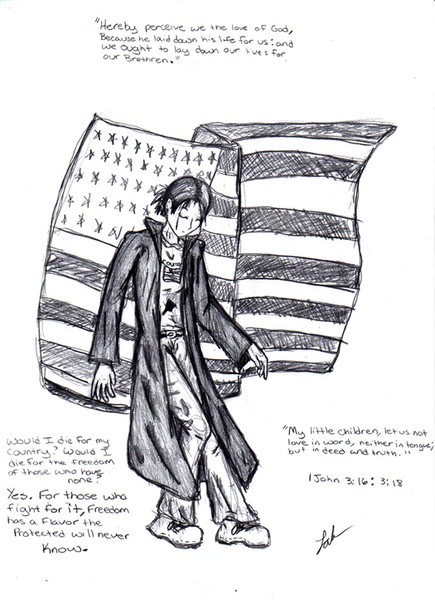 "Hereby perceive we the love of God,
Because he laid down his life for us: and
we ought to lay down our lives for
our Brethren."
Would I die for my
country? Would I
die for the freedom
of those who have
none?
Yes. For those who
fight for it, Freedom
has a Flavor the
Protected will never
Know.
"My little children, let us not
love in word, neither in tongue;
but in deed and truth."
1 John 3:16; 3:18